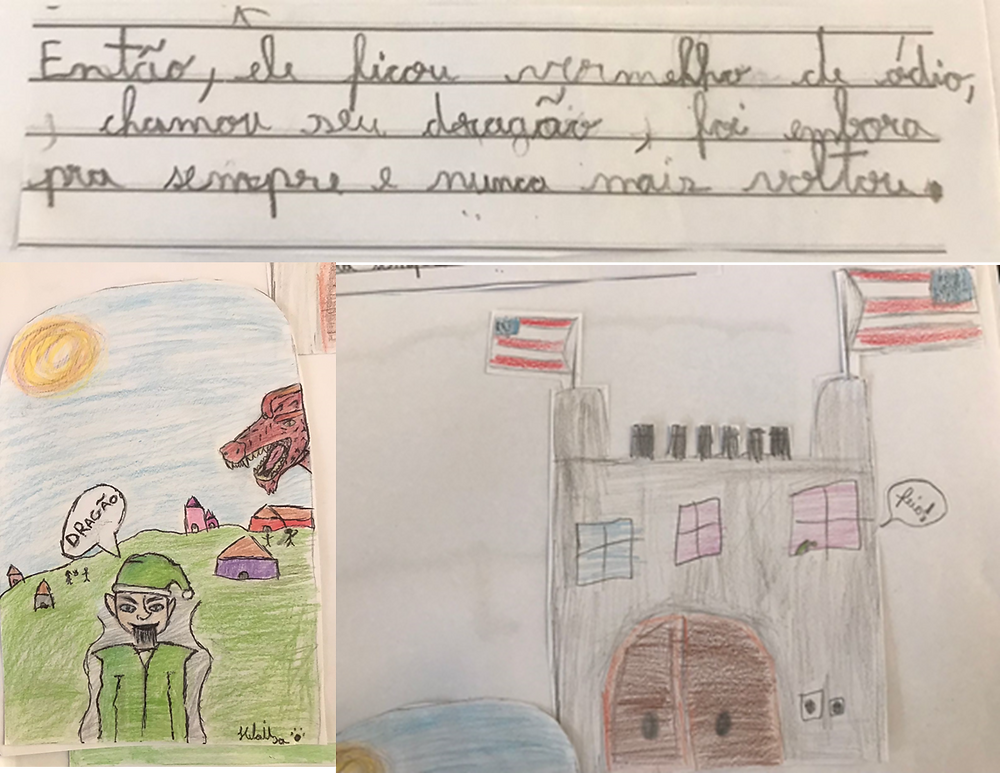 Então, ele ficou vermelho de ódio,
, chamou seu dragão, foi embora
pra sempre e nunca mais voltou.
DRAGÃO
feio!